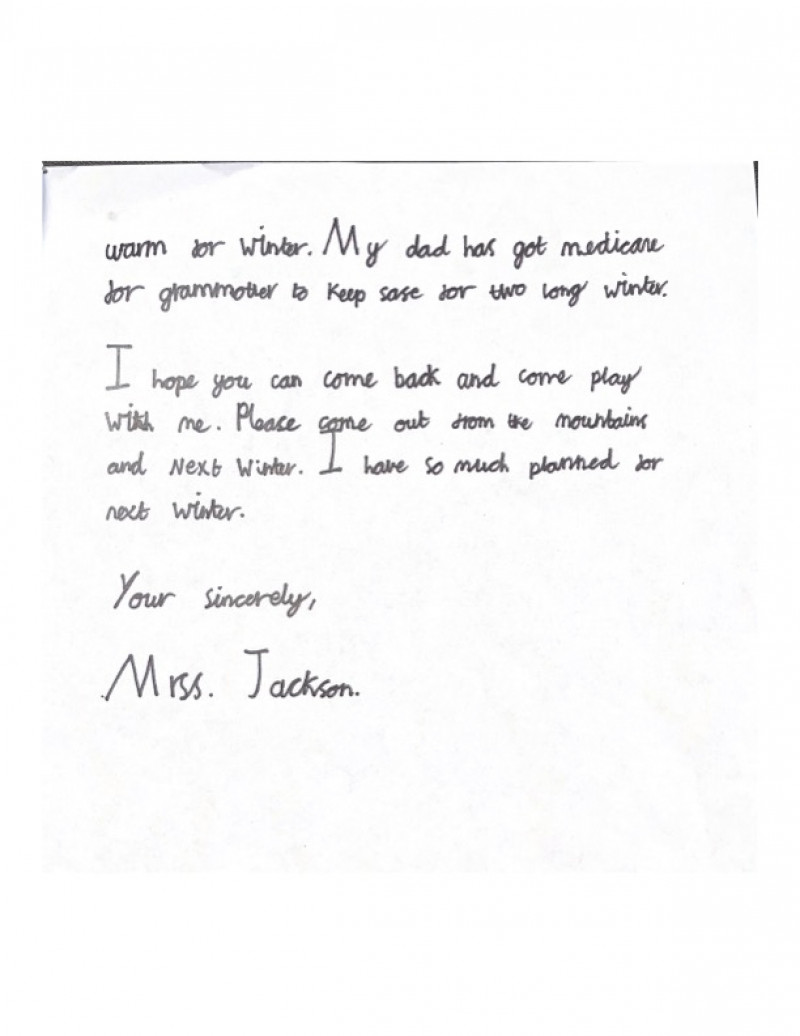 warm for winter. My dad has got medicare
for grammother to keep sase for two long winter.
I hope you can come back and come play
with me. Please come out from the mountains
and Next Winter. I have so much planned for
next winter.
Your sincerely,
Mrss. Jackson.